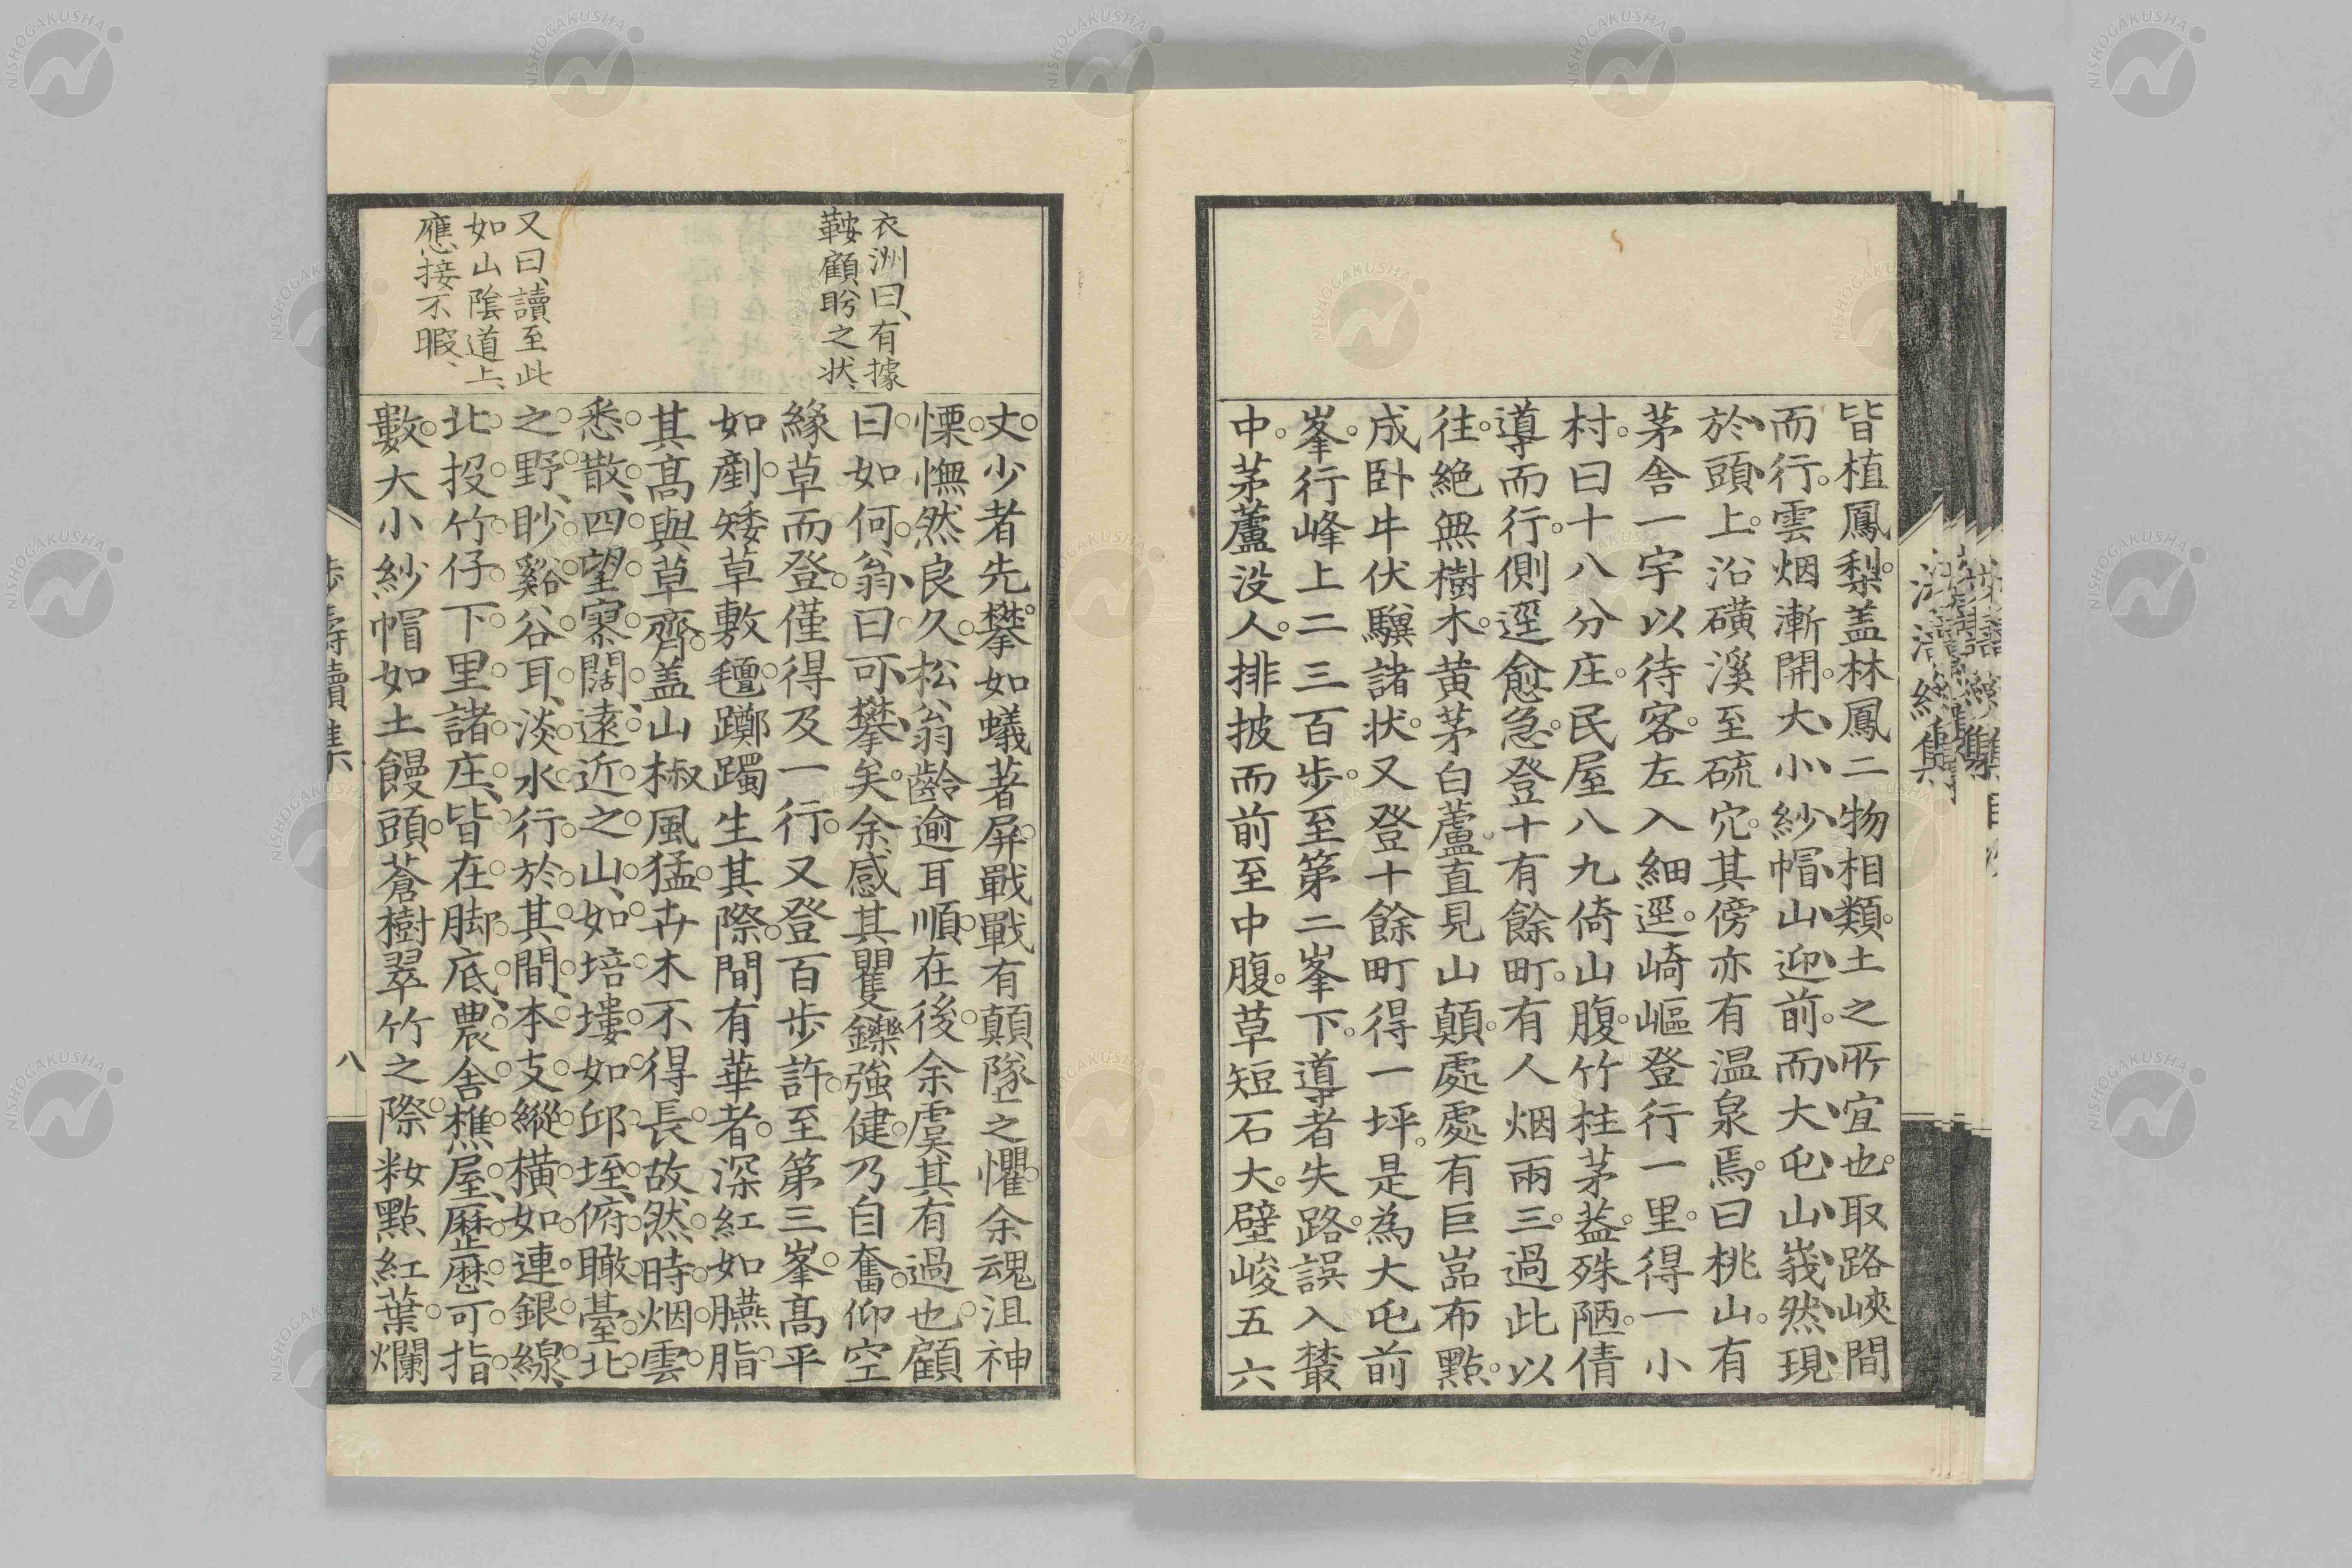 皆植鳳梨。盖林鳳二物相類。土之所宜也。取路峽間
而行。雲烟漸開。大小紗帽山迎前。而大屯山峩然現
於頭上。沿磺溪至硫穴。其傍亦有温泉焉。曰桃山。有
茅舎一宇以待客。左入細逕。崎嶇登行一里。得一小
村。曰十八分庄。民屋八九倚山腹。竹柱茅葢。殊陋。倩
導而行。側逕愈急。登十有餘町。有人烟兩三。過此以
往。絶無樹木。黄茅白蘆。直見山顛。處處有巨嵓布點。
成卧牛伏驥諸状。又登十餘町得一坪。是為大屯前
峯。行峰上二三百歩。至第二峯下。導者失路。誤入叢
中。茅蘆没人。排披而前至中腹。草短石大。壁峻五六
衣洲曰、有據
鞍顧盼之状、
又曰、讀至此
如山陰道上、
應接不暇、
丈。少者先攀。如蟻著屏。戰戰有顛墜之懼。余魂沮神
慄。憮然良久。松翁齡逾耳順。在後。余虞其有過也。顧
曰。如何。翁曰可攀矣。余感其矍鑠強健。乃自奮。仰空
緣草而登。僅得及一行。又登百歩許。至第三峯。高平
如剷。矮草敷氈。躑躅生其際。間有華者。深紅如臙脂。
其高與草齊。盖山椒風猛。卉木不得長。故然。時烟雲
悉散、四望寥闊、遠近之山、如培塿、如邱垤、俯瞰臺北
之野、眇谿谷耳、淡水行於其間、本支縱横如連銀線、
北投竹仔下里諸庄、皆在脚底、農舎樵屋、歷歷可指
數。大小紗帽如土饅頭。蒼樹翠竹之際。籹點紅葉。爛
八